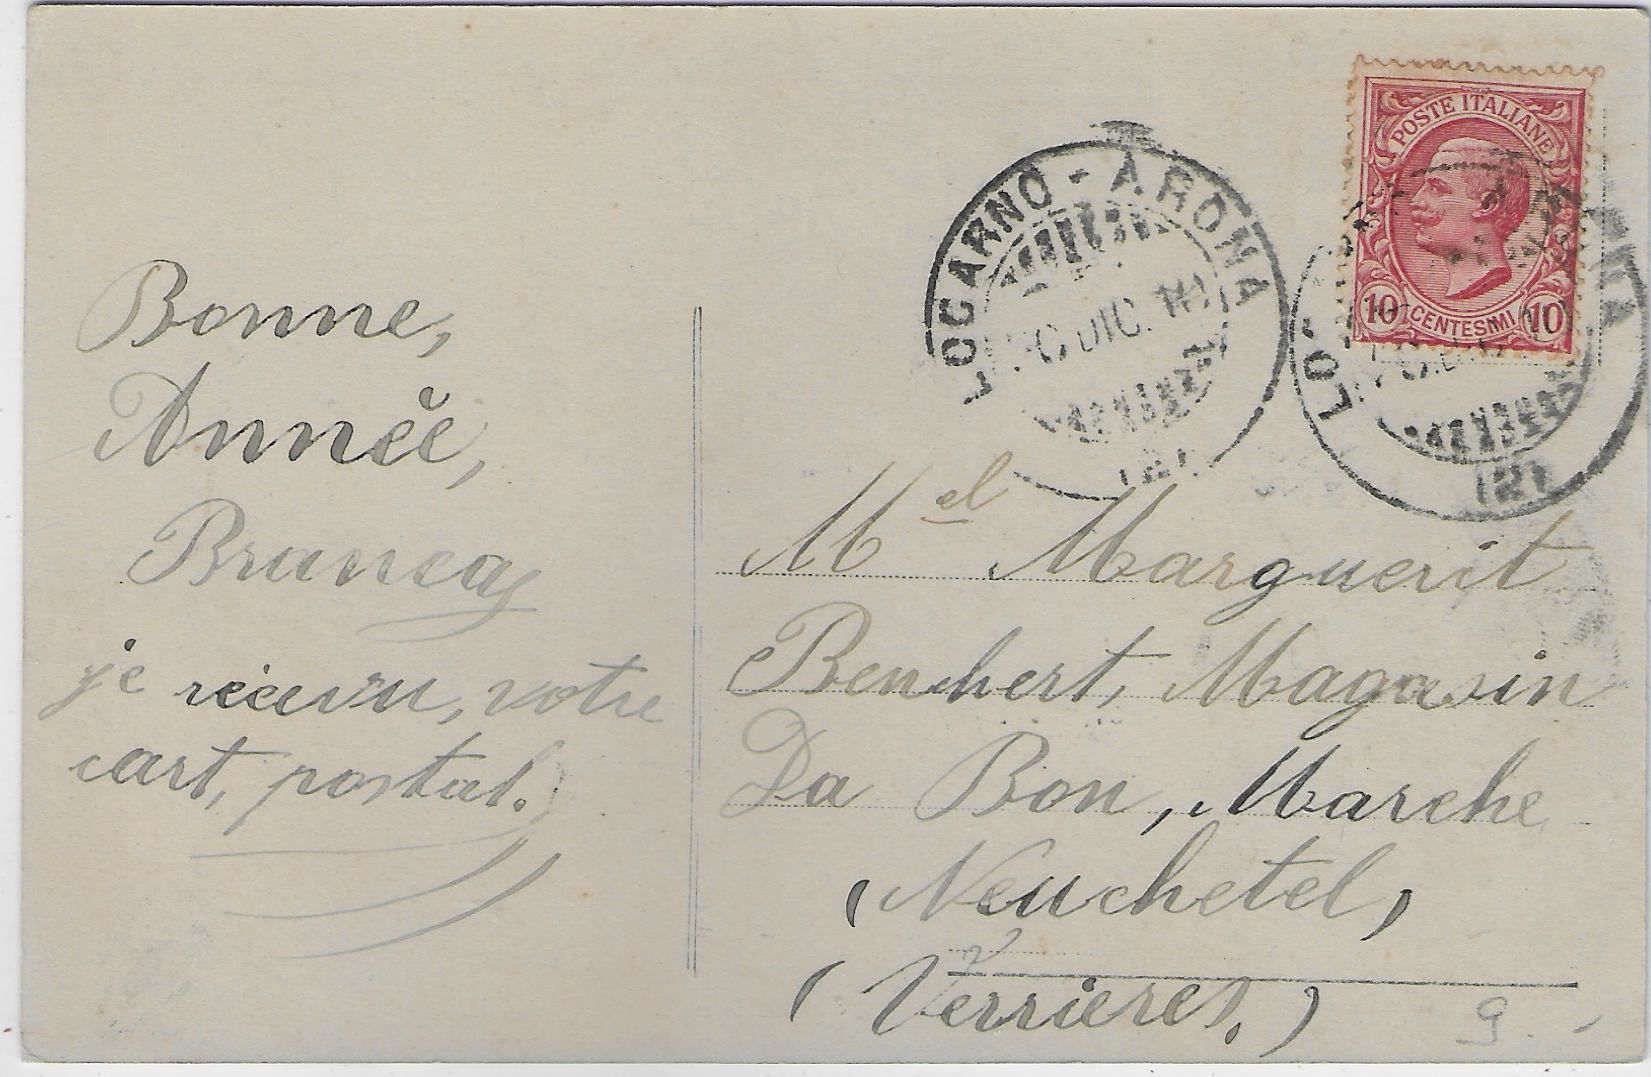 Bonne,
Année,
Branca
je recevu, votre
cart, postal.
POSTE ITALIANE
10 CENTESIMI 10
LOCARNO - ARONA
DIC. 10
(2)
LO
NA
(2)
Mel Marguerit
Benhert, Magasin
Da Bon, Marche
(Neuchetel)
(Verrieres.)
9